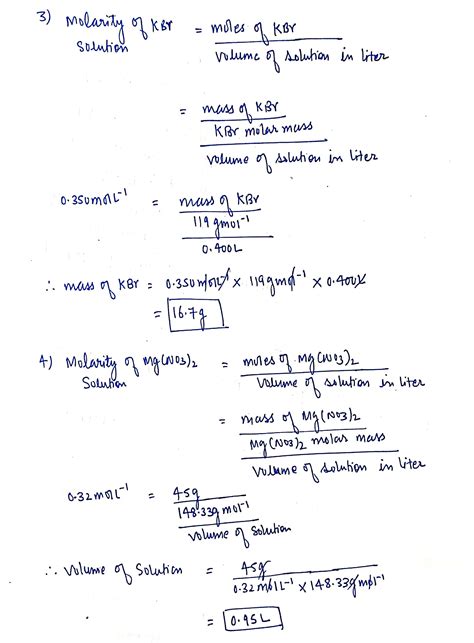 3) Molarity of KBr = moles of KBr
Solution volume of solution in liter
= mass of KBr
KBr molar mass
volume of solution in liter
0.350molL⁻¹ = mass of KBr
119 gmol⁻¹
0.400L
∴ mass of KBr = 0.350molL⁻¹ × 119gmol⁻¹ × 0.400L
= 16.7g
4) Molarity of Mg(NO3)2 = moles of Mg(NO3)2
Solution Volume of solution in liter
= mass of Mg(NO3)2
Mg(NO3)2 molar mass
volume of solution in liter
0.32molL⁻¹ = 45g
148.33gmol⁻¹
volume of solution
∴ Volume of Solution = 45g
0.32molL⁻¹ × 148.33gmol⁻¹
= 0.95L